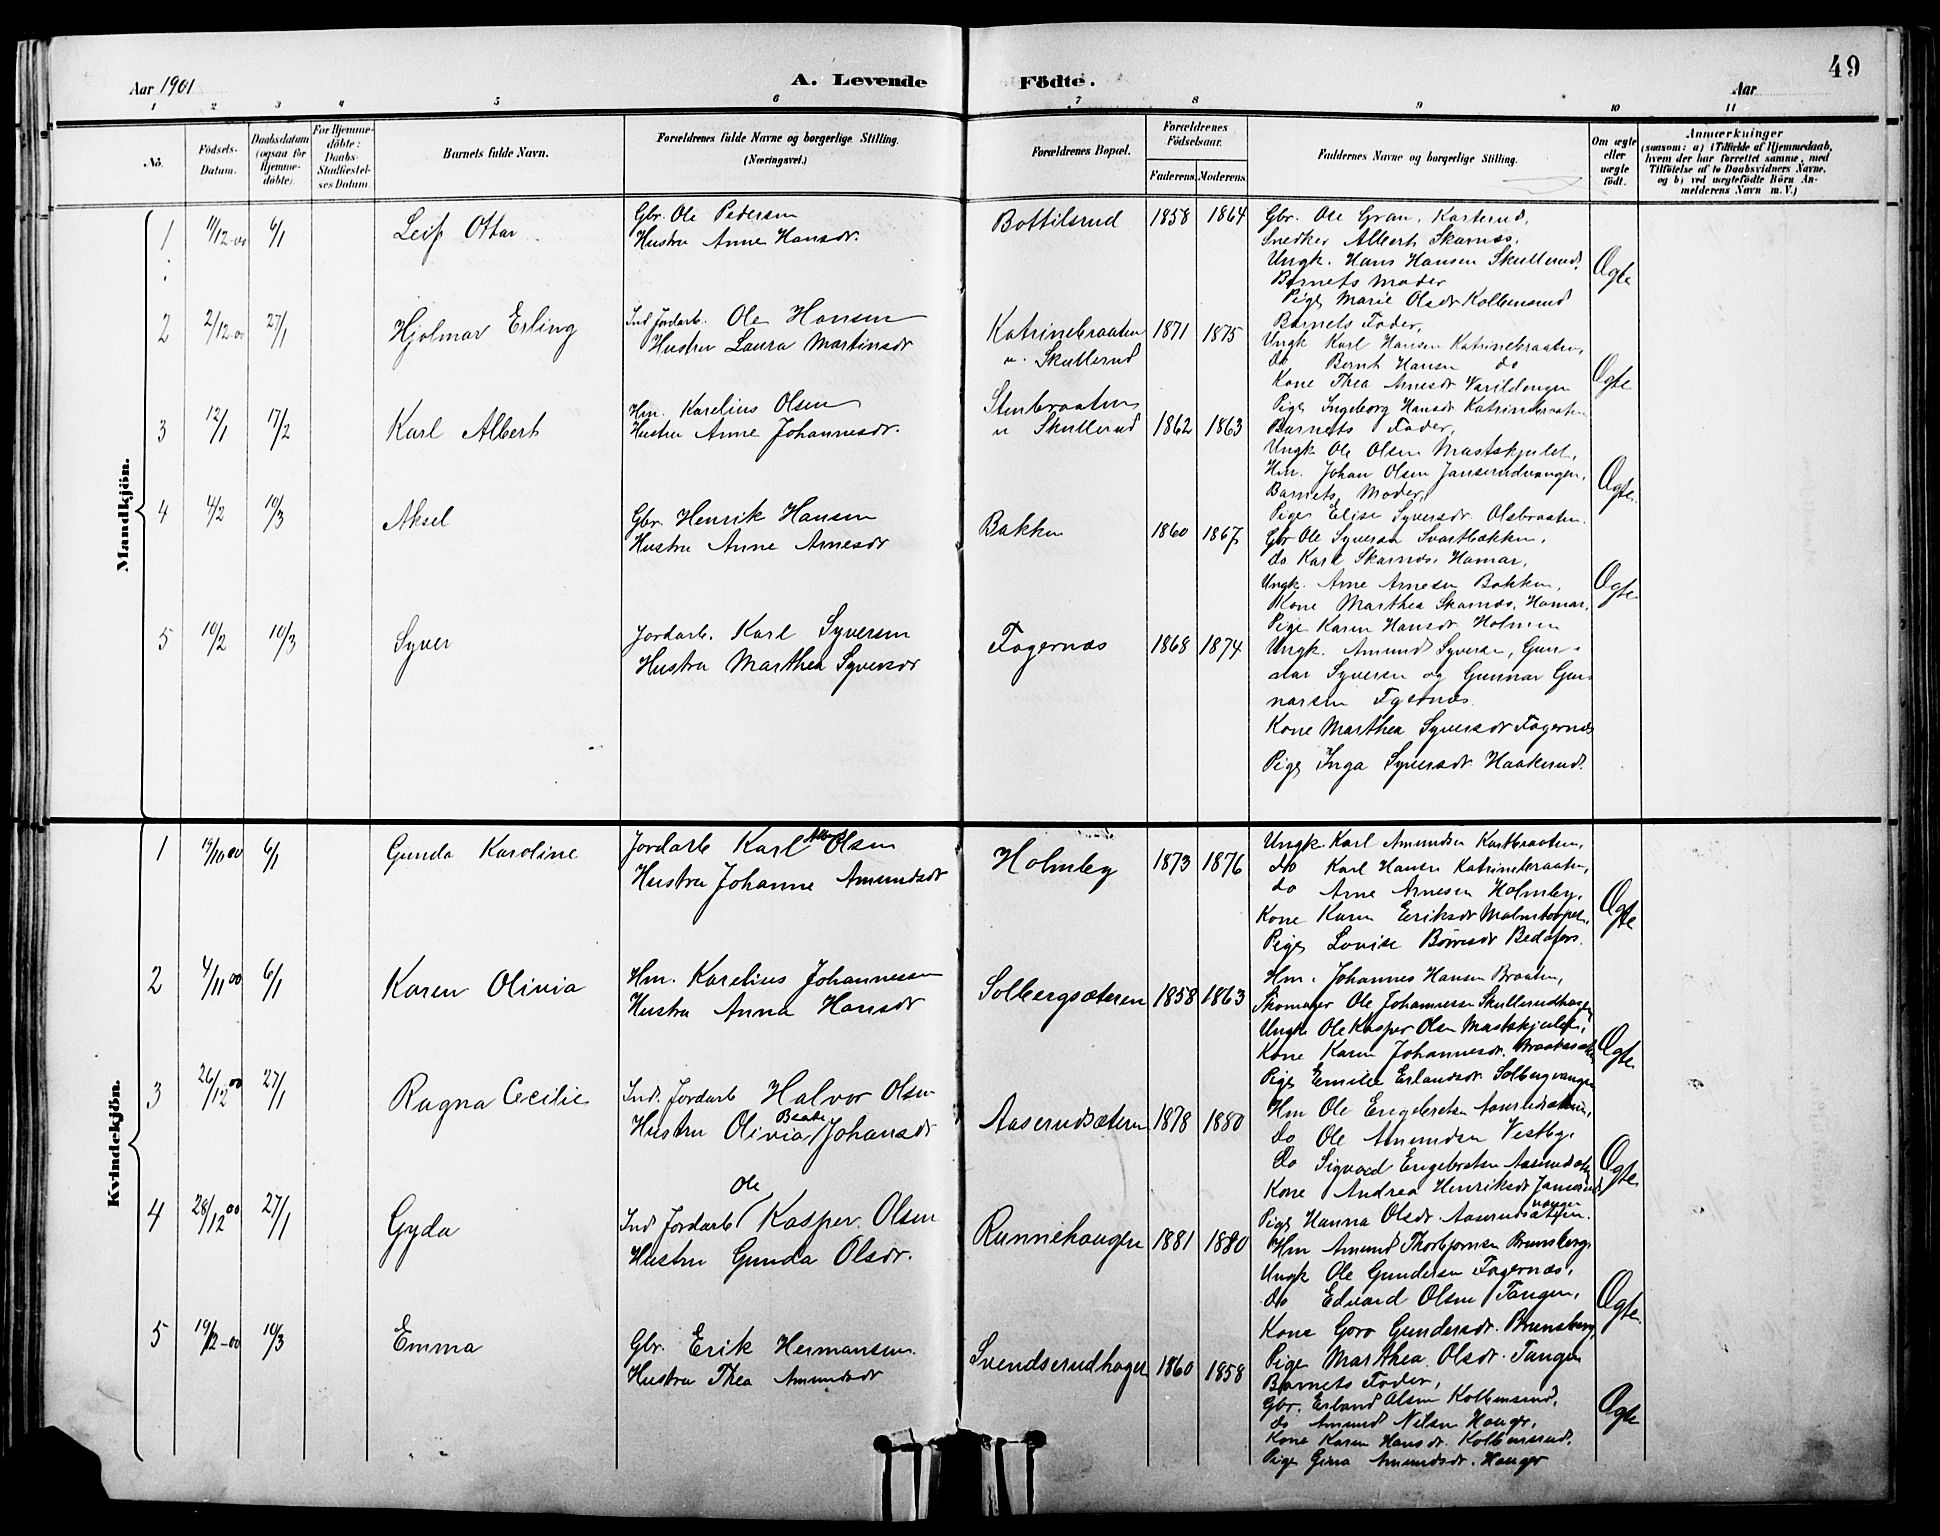 49
Aar 1901
A. Levende Födte.
Aar
1 2 3 4 5 6 7 8 9 10 11
No.
Födsels-Datum.
Daabsdatum (ogsaa for Hjemmedöbte).
For Hjemmedöbte: Daabs-Stadfæstelses Datum
Barnets fulde Navn.
Forældrenes fulde Navne og borgerlige Stilling. (Næringsvei.)
Forældrenes Bopæl.
Forældrenes Födselsaar.
Faderens. Moderens.
Faddernes Navne og borgerlige Stilling.
Om ægte eller uægte födt.
Anmærkninger
(saasom: a) i Tilfælde af Hjemmedaab, hvem der har forrettet samme, med Tilföielse af to Daabsvidners Navne, og b) ved uægtefödte Börn Anmelderens Navn m. V.)
Mandkjön.
1 11/12-00 6/1 Leif Ottar
Gbr. Ole Pedersen
Hustru Anne Hansdr.
Bottilsrud 1858 1864
Gbr. Ole Gran, Karterud,
Snedker Albert Skarnæs,
Ungk. Hans Hansen Skullerud,
Barnets Moder
Pige Marie Olsdr Kolbensrud
Ægte
2 2/12-00 27/1 Hjalmar Erling
Ind. Jordarb. Ole Hansen
Hustru Laura Martinsdr
Katrinebraaten
u. Skullerud
1871 1875
Barnets Fader,
Ungk Karl Hansen Katrinebraaten,
do Bernt Hansen do
Kone Thea Arnesdr Varildengen
Pige Ingeborg Hansdr Katrinebraaten
Ægte
3 12/1 17/2 Karl Albert
Hm. Karelius Olsen
Hustru Anne Johannesdr.
Stenbraaten
u Skullerud 1862 1863
Barnets Fader,
Ungk Ole Olsen Mastskjulet,
Hm. Johan Olsen Janserudvangen,
Barnets Moder,
Pige Elise Syversdr. Olsbraaten
Ægte
4 4/2 10/3 Aksel
Gbr. Henrik Hansen
Hustru Anne Arnesdr
Bakken 1860 1867
Gbr Ole Syversen Svartbækken,
do Karl Skarnæs, Hamar,
Ungk. Arne Arnesen Bakken,
Kone Marthea Skarnæs, Hamar,
Pige Karen Hansdr. Holmen
Ægte
5 10/2 10/3 Syver
Jordarb. Karl Syversen
Hustru Marthea Syversdr
Fagernæs 1868 1874
Ungk. Amund Syversen, Gun-
nar Syversen og Gunnar Gun-
narsen Fagernæs
Kone Marthea Syversdr Fagernæs
Pige Inga Syversdr. Haakerud.
Kvindekjön.
1 19/10 00 6/1 Gunda Karoline
Jordarb Karl Alb. Olsen
Hustru Johanne Amundsdr
Holmby 1873 1876
Ungk. Karl Amundsen Kartbraaten,
do Karl Hansen Katrinebraaten,
do Arne Arnesen Holmby,
Kone Karen Eriksdr
Pige Lovise Børresdr Bedafors.
Ægte
2 4/11 00 6/1 Karen Olivia
Hm. Karelius Johannessen
Hustru Anna Hansdr
Solbergsæteren 1858 1863
Hm. Johannes Hansen Braaten,
Skomager Ole Johannessen Skullerudhagen
Ungk Ole Kasper Olsen Mastskjulet,
Kone Karen Johannesdr.
Pige Emilie Erlandsdr. Solbergvangen
Ægte
3 26/12 00 27/1 Ragna Cecilie
Ind. Jordarb Halvor Olsen
Hustru Olivia Beate Johansdr
Aaserudsæteren 1878 1880
Hm Ole Engebretsen Aaserudsæteren,
do Ole Amundsen Vestby,
do Sigvard Engebretsen Aaserudsæteren
Kone Andrea Henriksdr Janserud
vangen
Pige Hanna Olsdr. Aaserudsæteren.
Ægte
4 28/12 00 27/1 Gyda
Ole
Ind Jordarb Kasper Olsen
Hustru Gunda Olsdr.
Runnehaugen 1881 1880
Hm Amund Thorbjørnsen Brunsberg,
Ungk Ole Gundersen Fagernæs,
do Edvard Olsen Tangen,
Kone Goro Gundersdr. Brunsberg
Pige Marthea Olsdr. Tangen
Ægte
5 19/12-00 10/3 Emma
Gbr. Erik Hermansen
Hustru Thea Amundsdr
Svendserudhagen 1860 1858
Barnets Fader,
Gbr. Erland Olsen Kolbensrud,
do Amund Nilsen Hauger,
Kone Karen Hansdr. Kolbensrud,
Pige Gina Amundsdr. Hauger
Ægte